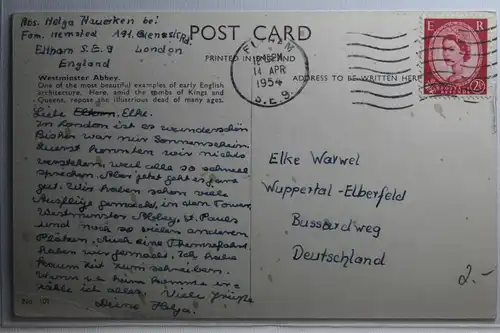 Abs. Helga Nauerken bei
Fam. Hemsted 191. Glenesk Rd.
Eltham S.E.9 London
England
POST CARD
PRINTED IN ENGLAND
ADDRESS TO BE WRITTEN HERE
ELTHAM
PM
11 APR
1954
S.E.9.
E R
Westminster Abbey.
One of the most beautiful examples of early English
architecture. Here, amid the tombs of Kings and
Queens, repose the illustrious dead of many ages.
Liebe Elke.
In London ist es wunderschön
Bisher war nur Sonnenschein.
Zuerst konnten wir nichts
verstehen, weil alle so schnell
sprechen. Aber jetzt geht es ganz
gut. Wir haben schon viele
Ausflüge gemacht, in den Tower,
Westminster Abbey, St. Pauls
und noch so vielen anderen
Plätzen. Auch eine Themsefahrt
haben wir gemacht. Ich habe
kaum Zeit zum schreiben.
Wenn ich heim komme er-
zähle ich alles. Viele Grüße
Deine Helga.
Elke Warwel
Wuppertal-Elberfeld
Bussardweg
Deutschland
2.-